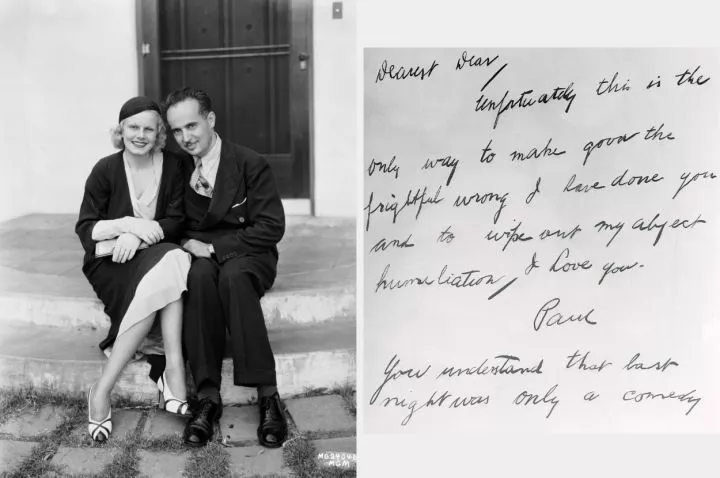 Dearest Dear,
Unfortuately this is the
only way to make good the
frightful wrong I have done you
and to wipe out my abject
humiliation, I Love you.
Paul
You understand that last
night was only a comedy
MG24048
MGM